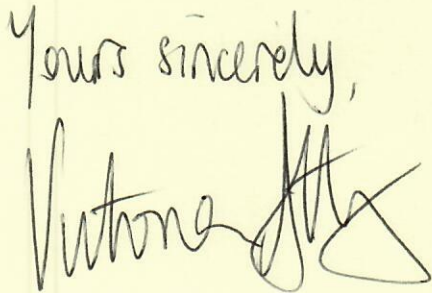 Yours sincerely,
Victoria